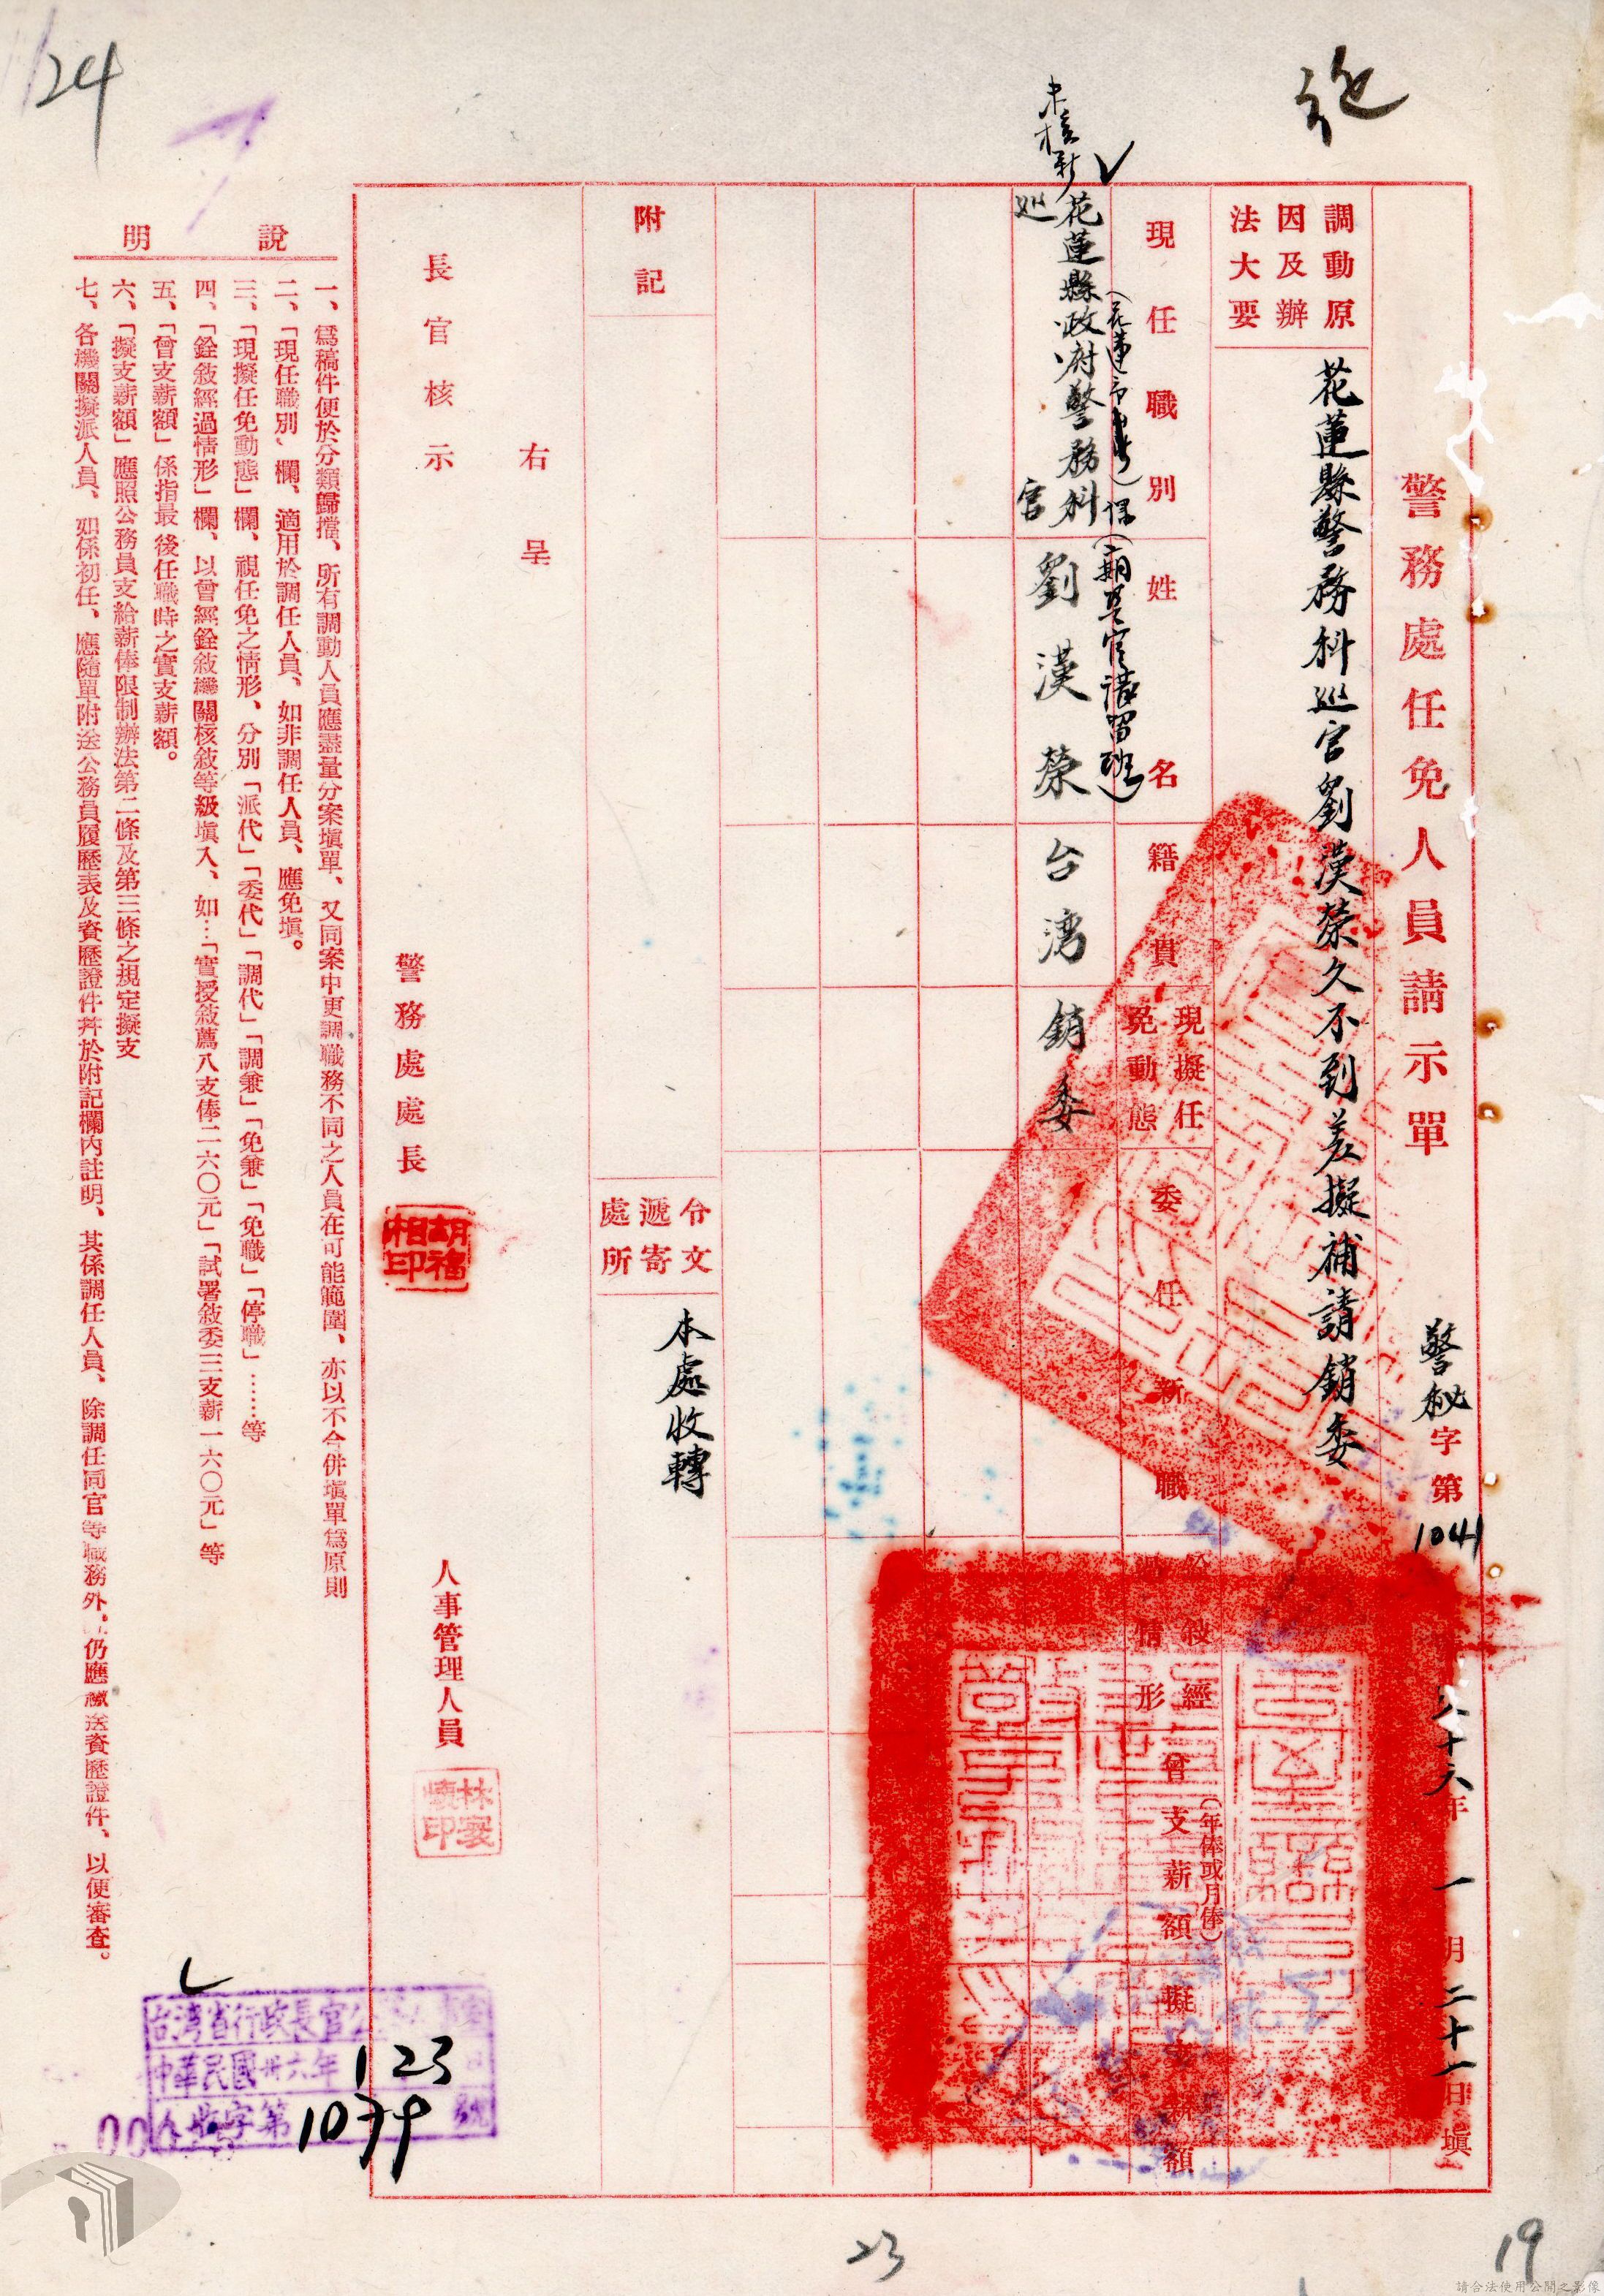 警務處任免人員請示單
警秘字第1041
卅六年一月二十一日填
調動原
因及辦
法大要
花蓮縣警務科巡官劉漢榮久不到差擬補請銷委
現任職別
姓名
籍貫
現擬任
免動態
委任新職
敘經
情形
曾支薪額
(年俸或月俸)
擬支薪額
花蓮縣政府警務科
巡官
劉漢榮
台灣
銷委
附記
令文
遞寄
處所
本處收轉
右呈
長官核示
警務處處長
胡福
相印
人事管理人員
說明
一、爲稿件便於分類歸擋、所有調動人員應盡量分案塡單、又同案中更調職務不同之人員在可能範圍、亦以不令併塡單爲原則
二、「現任職別」欄、適用於調任人員、如非調任人員、應免塡。
三、「現擬任免動態」欄、視任免之情形、分別「派代」「委代」「調代」「調兼」「免兼」「免職」「停職」……等
四、「銓敘經過情形」欄、以曾經銓敘機關核敘等級塡入、如…「實授敘薦八支俸二六〇元」「試署敘委三支薪一六〇元」等
五、「曾支薪額」係指最後任職時之實支薪額。
六、「擬支薪額」應照公務員支給薪俸限制辦法第二條及第三條之規定擬支
七、各機關擬派人員、如係初任、應隨單附送公務員履歷表及資歷證件幷於附記欄內註明、其係調任人員、除調任同官等職務外、仍應繳送資歷證件、以便審查。
台灣省行政長官公
中華民國卅六年 1 23
字第1079號
124
23
19
請合法使用公開之影像